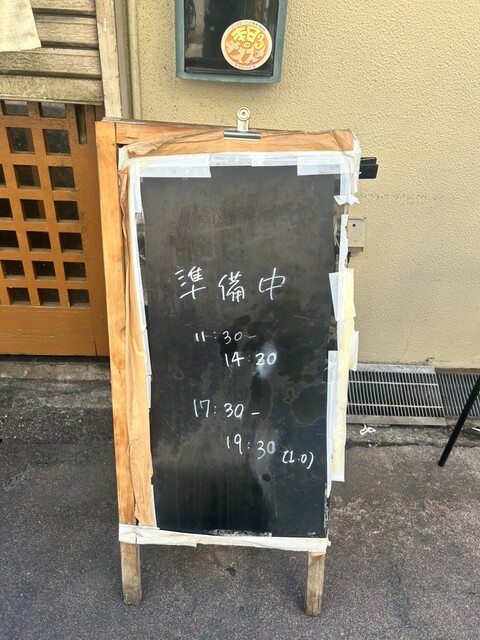 準備中
11:30-
14:30
17:30-
19:30 (L.O)